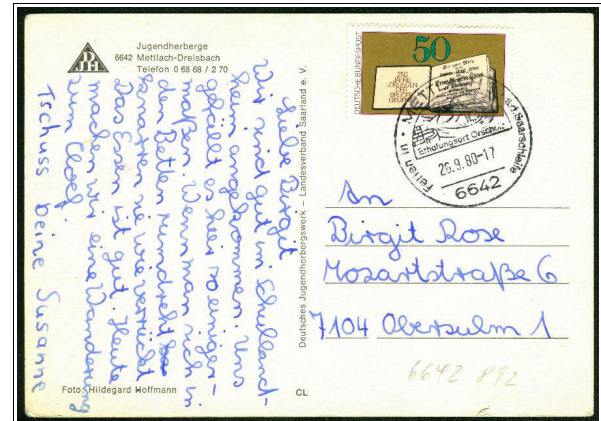 Jugendherberge
6642 Mettlach-Dreisbach
Telefon 0 68 68 / 2 70
Liebe Birgit
Wir sind gut im Schulland-
heim angekommen. Uns
gefällt es hier so einiger-
maßen. Wenn man sich in
den Betten rumdreht
knarren sie wie verrückt
Das Essen ist gut. Heute
machen wir eine Wanderung
zum Cloef.
Tschuss deine Susanne
Foto: Hildegard Hoffmann
CL
Deutsches Jugendherbergswerk – Landesverband Saarland e. V.
DEUTSCHE BUNDESPOST
50
250
JAHRE
LOSUNGEN
DER
BRÜDER-
GEMEINE
METTLACH
a.d. Saarschleife
Erholungsort Orscholz
Ferien
26.9.80-17
6642
An
Birgit Rose
Mozartstraße 6
7104 Obersulm 1
6642 892